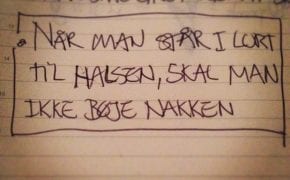 NÅR MAN STÅR I LORT
TIL HALSEN, SKAL MAN
IKKE BØJE NAKKEN